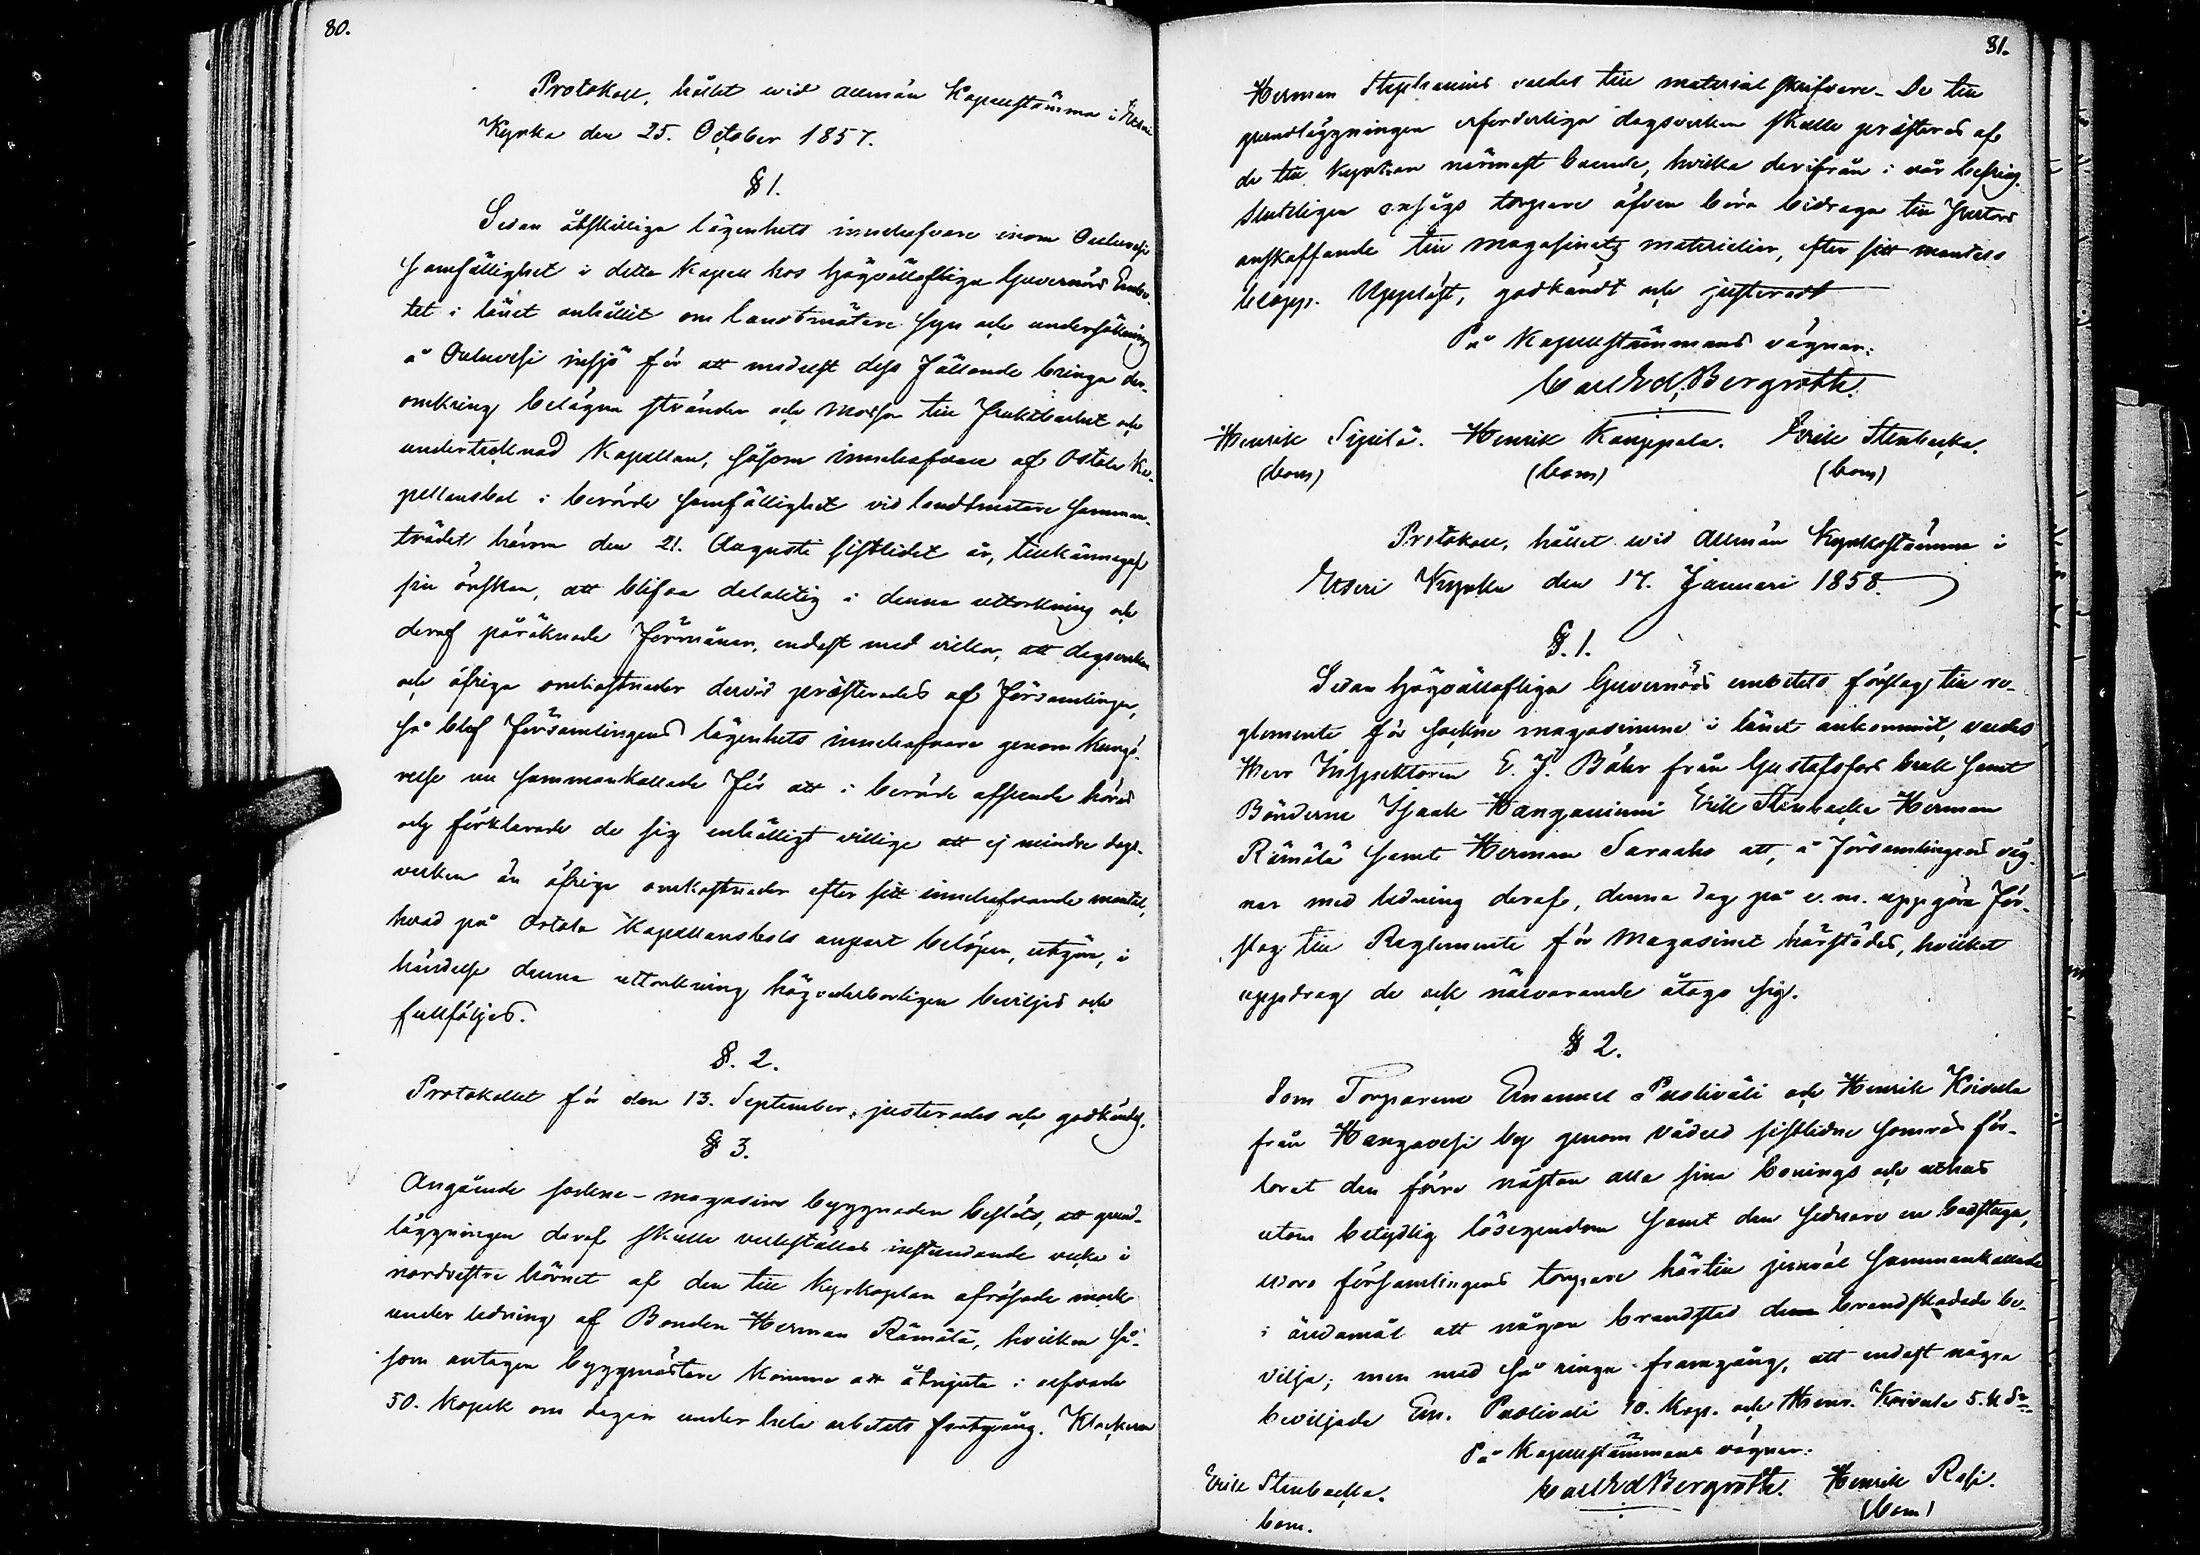 80.
Protokoll, hållet wid Allmän Kapellstämma i Etseri
Kyrka den 25. October 1857.
§ 1.
Sedan åtskilliga lägenhets innehafvare inom Ouluvesi
samfällighet i detta Kapell hos högvällofliga Guvernörs Embe-
tet i länet anhållit om landtmätare syn och undersökning
å Ouluvesi insjö för att medelst dess fällande bringa der-
omkring belägna stränder och mossar till fruktbarhet och
undertecknad Kapellan, såsom innehafvare af Ostola Ka-
pellansbol i berörde samfällighet vid landtmätare samman-
trädet härom den 21. Augusti sistlidet år, tillkännagaf
sin önskan, att blifva delaktig i denna uttorkning och
deraf påräknade förmåner, endast med villkor, att dagsverken
och öfriga omkostnader dervid presterades af församlingen,
så blef församlingens lägenhets innehafvare genom kungö-
relse nu sammankallade för att i berörde afseende höras
och förklarade de sig enhälligt villige att ej mindre dags-
verken än öfriga omkostnader efter sitt innehafvande mantal,
hvad på Ostola Kapellansbols anpart belöper, utgöra, i
händelse denna uttorkning högvederbörligen beviljes och
fullföljes.
§. 2.
Protokollet för den 13. September justerades och godkändes.
§ 3.
Angående sockne-magasins byggnaden beslöts, att grund-
läggningen deraf skulle verkställas instundande vecka i
nordvestra hörnet af den till Kyrkoplan afrösade mark
under ledning af Bonden Herman Rämälä, hvilken så-
som antagen byggmästare kommer att åtnjuta i arfvode
50. kopek om dagen under hela arbetets fortgång. Klockaren
81.
Herman Stephanius valdes till material skrifvare. De till
grundläggningen erforderliga dagsverken skulle presteras af
de till Kyrkan närmast boende, hvilka derifrån i vår befrias.
Slutligen ansågs torpare äfven böra bidraga till
anskaffande till magasinets materialier, efter sitt mantals
belopp. Uppläst, godkändt och justeradt
På Kapellstämmans vägnar:
Carl Ed. Bergroth.
Henrik Sipilä. Henrik Kauppala. Erik Stenbacka.
(bom) (bom) (bom)
Protokoll, hållet wid Allmän Kyrkostämma i
Etseri Kyrka den 17. Januari 1858.
§. 1.
Sedan högvällofliga Guvernörs embetets förslag till re-
glemente för sockne magasinerne i länet ankommit, valdes
Herr Inspektoren E. J. Bähr från Gustafsfors bruk samt
Bönderne Isaak Hanganiemi Erik Stenbacka Herman
Rämälä samt Herman Saraaho att, å församlingens väg-
nar med ledning deraf, denna dag på e. m. uppgöra för-
slag till Reglemente för Magasinet härstädes, hvilket
uppdrag de ock närvarande åtogo sig.
§ 2.
Som Torparene Emanuel Puoliväli och Henrik Koivula
från Hangavesi by genom vådeld sistlidne sommar för-
lorat den förre nästan alla sina bonings och uthus
utom betydlig lösegendom samt den sednare en badstuga,
woro församlingens torpare härtill jemväl sammankallade
i ändamål att någon brandstod dem brandskadade be-
vilja; men med så ringa framgång, att endast några
beviljade Em. Puoliväli 10. kop. och Henr. Koivula 5. k Sr.
På Kapellstämmans vägnar:
Carl Ed Bergroth. Henrik Rasi.
Erik Stenbacka. (bom)
bom.